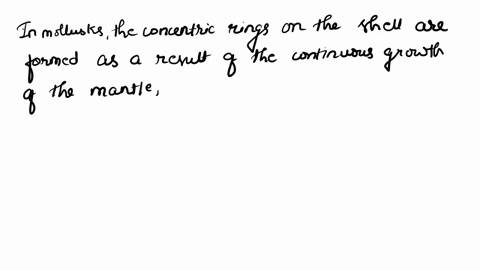 In mollusks, the concentric rings on the shell are
formed as a result of the continuous growth
of the mantle,